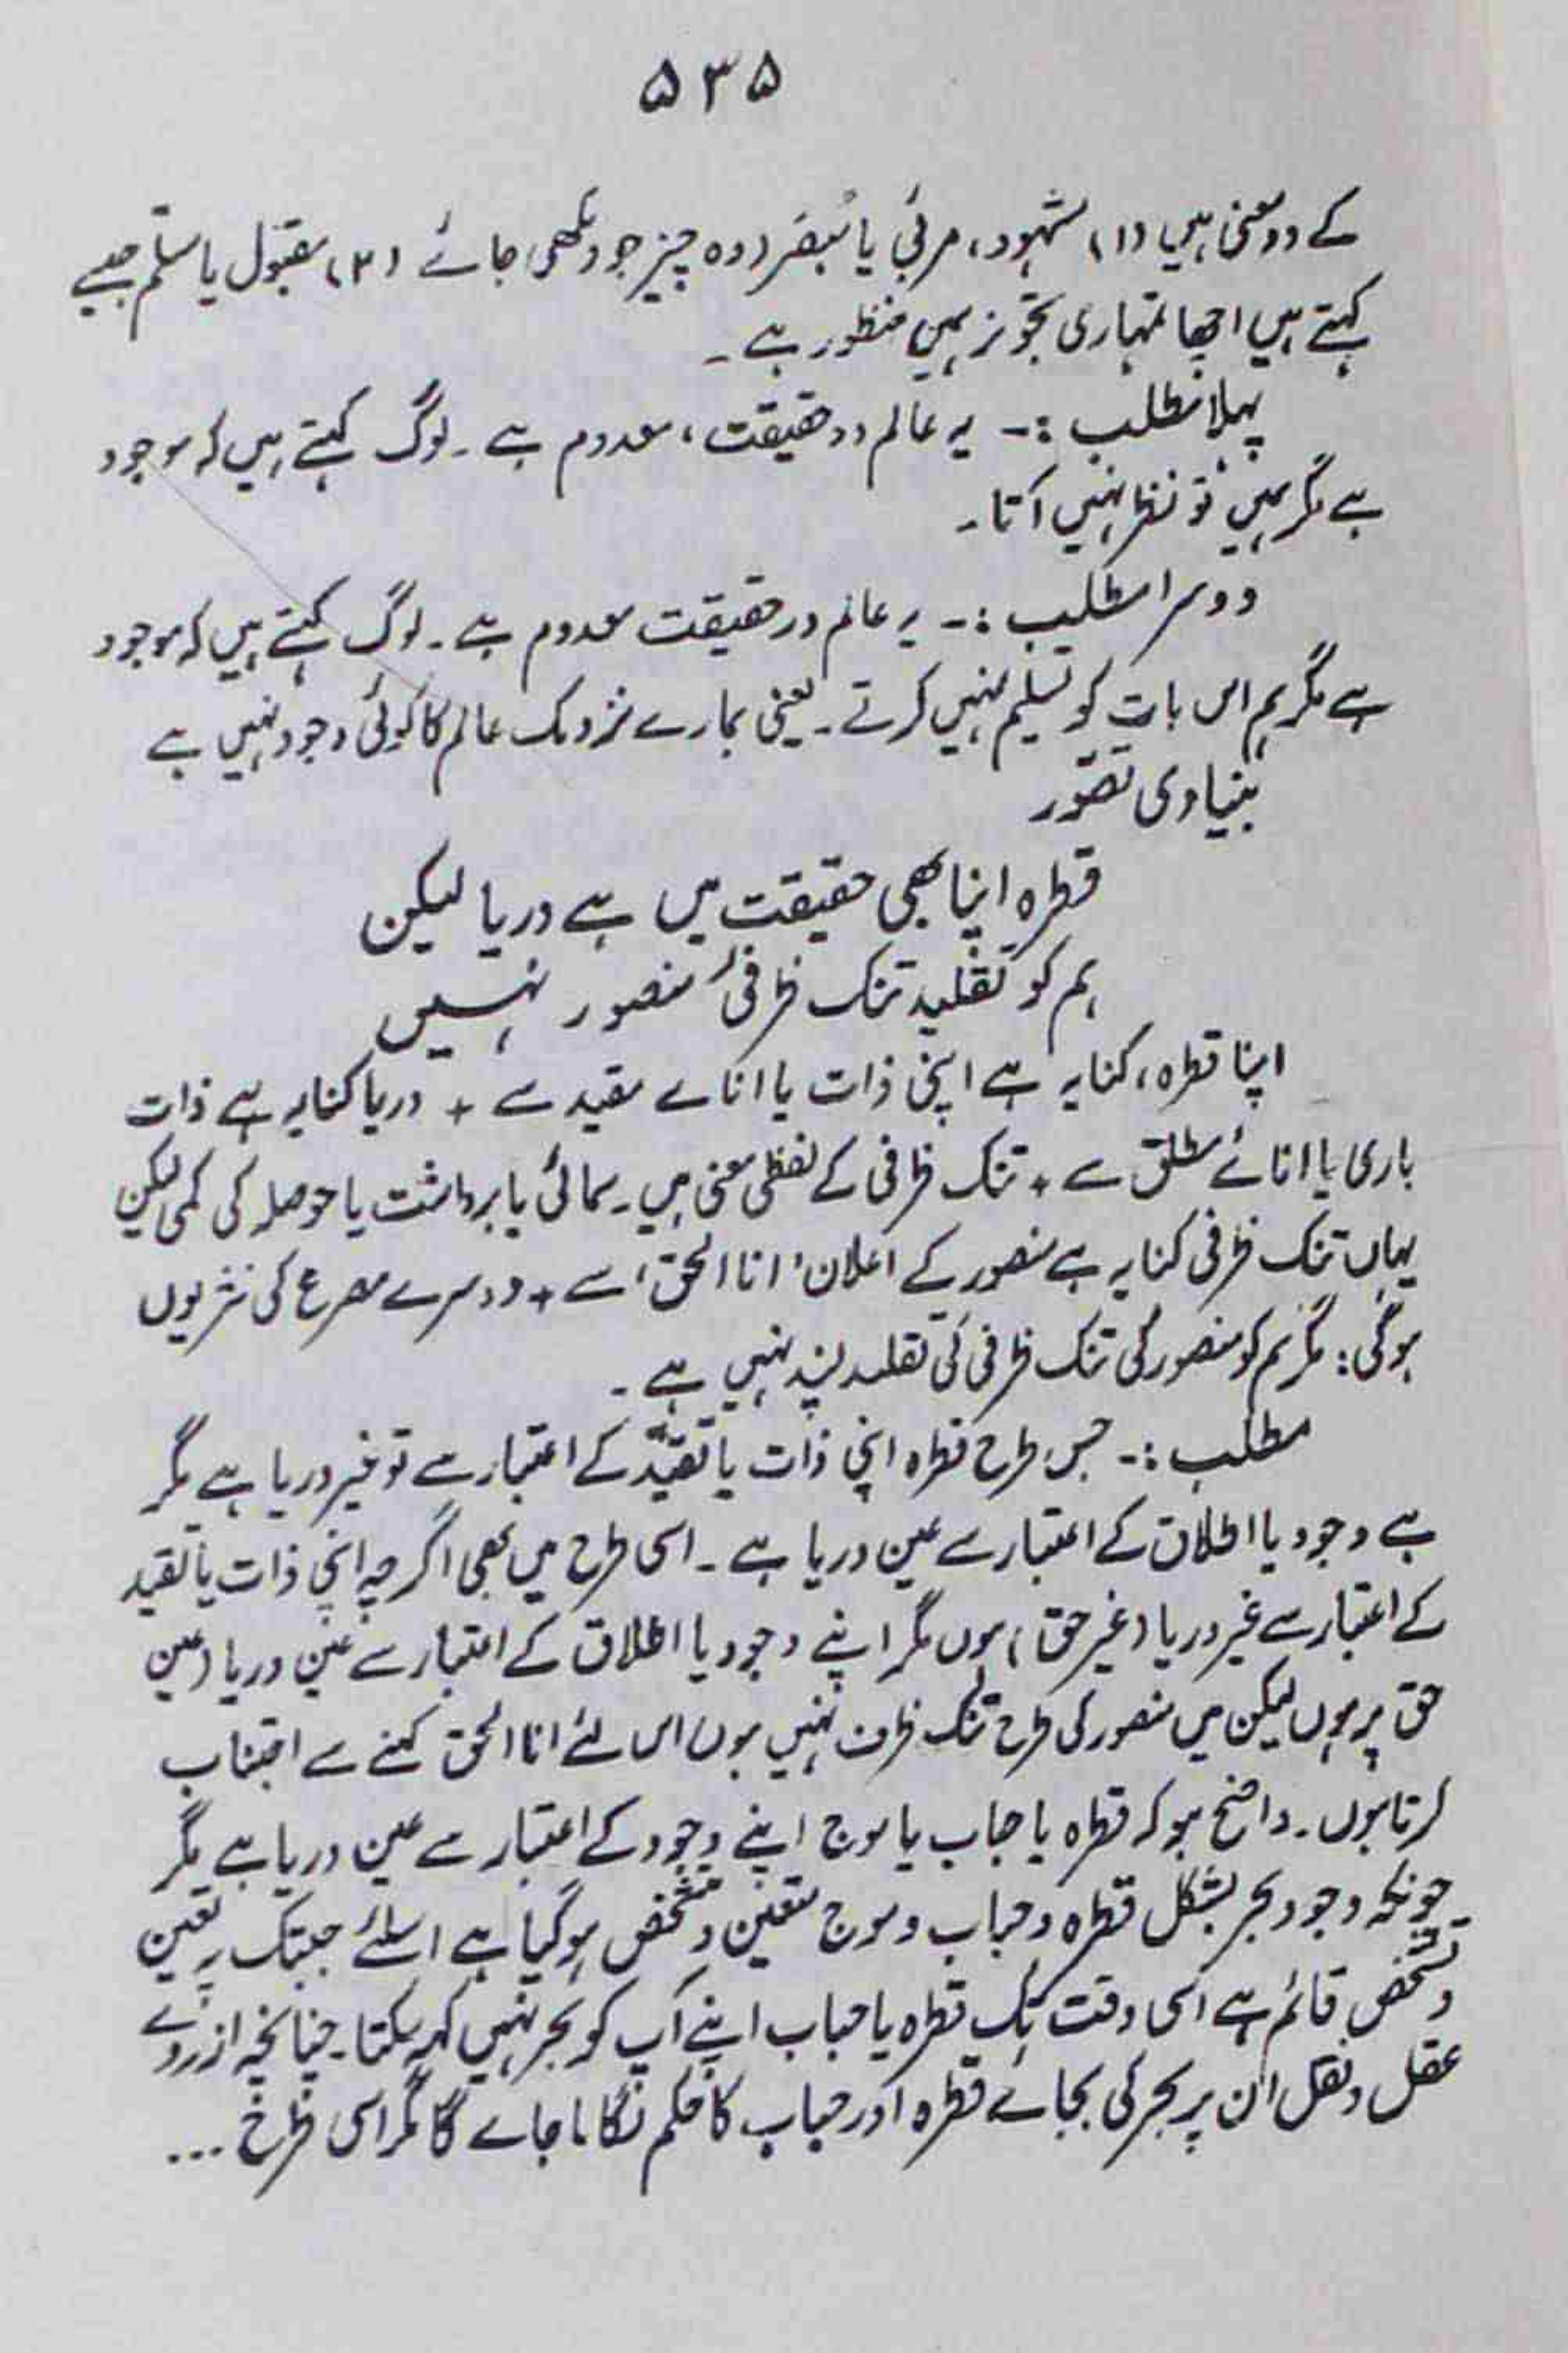 ۵۳۵
کے دو معنی ہیں (۱) مشہود، مرئی یا مُبصَر (وہ چیز جو دیکھی جائے (۲) مقبول یا مسلّم جیسے
کہتے ہیں اچھا تمہاری تجویز ہمیں منظور ہے ۔
پہلا مطلب :۔ یہ عالم در حقیقت، معدوم ہے ۔ لوگ کہتے ہیں کہ موجود
ہے مگر ہمیں تو نظر نہیں آتا ۔
دوسرا مطلب :۔ یہ عالم در حقیقت معدوم ہے ۔ لوگ کہتے ہیں کہ موجود
ہے مگر ہم اس بات کو تسلیم نہیں کرتے ۔ یعنی ہمارے نزدیک عالم کا کوئی وجود نہیں ہے
بنیادی تصوّر
قطرہ اپنا بھی حقیقت میں ہے دریا لیکن
ہم کو تقلید تنک ظرفیٔ منصور نہیں
اپنا قطرہ، کنایہ ہے اپنی ذات یا انائے مقید سے + دریا کنایہ ہے ذات
باری یا انائے مطلق سے + تنک ظرفی کے لفظی معنی ہیں ۔ سمائی یا برداشت یا حوصلہ کی کمی لیکن
یہاں تنک ظرفی کنایہ ہے منصور کے اعلان ' انا الحق ' سے + دوسرے مصرع کی نثر یوں
ہوگی : مگر ہم کو منصور کی تنک ظرفی کی تقلید پسند نہیں ہے ۔
مطلب :۔ جس طرح قطرہ اپنی ذات یا تقیّد کے اعتبار سے تو غیر دریا ہے مگر
ہے وجود یا اطلاق کے اعتبار سے عین دریا ہے ۔ اسی طرح میں بھی اگرچہ اپنی ذات یا تقید
کے اعتبار سے غیر دریا (غیر حق) ہوں مگر اپنے وجود یا اطلاق کے اعتبار سے عین دریا (عین
حق پر ہوں لیکن میں منصور کی طرح تنک ظرف نہیں ہوں اس لئے انا الحق کہنے سے اجتناب
کرتا ہوں ۔ واضح ہو کہ قطرہ یا حباب یا موج اپنے وجود کے اعتبار سے عین دریا ہے مگر
چونکہ وجود بحر بشکل قطرہ و حباب و موج متعین و متشخص ہو گیا ہے اسلئے جبتک یہ تعین
و تشخص قائم ہے اسی وقت تک قطرہ یا حباب اپنے آپ کو بحر نہیں کہہ سکتا ۔ چنانچہ ازروئے
عقل و نقل ان پر بحر کی بجائے قطرہ اور حباب کا حکم لگایا جائے گا مگر اسی طرح ...